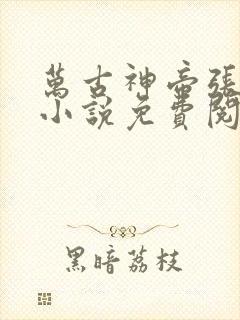 萬古神帝張
小說免費閱
黑暗荔枝